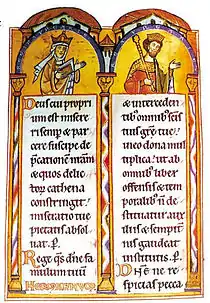 Deus cui propri
um est misere
ri semp & par
cere suscipe de
p̄cationē nr̄am
& quos delic
toꝝ cathena
constringit
miseratio tue
pietatis absol
uat. ꝑ.
Rege qs dn̄e fa
mulum tuū
& interceden
tib; omnib; sc̄is
tuis gr̄e tue
in eo dona mul
tiplica: ut ab
omnib; liber
offensis & tem
poralib; n̄ de
stituatur auxi
liis & sempit̄
nis gaudeat
institutis. ꝑ.
ne re
spicias pecca